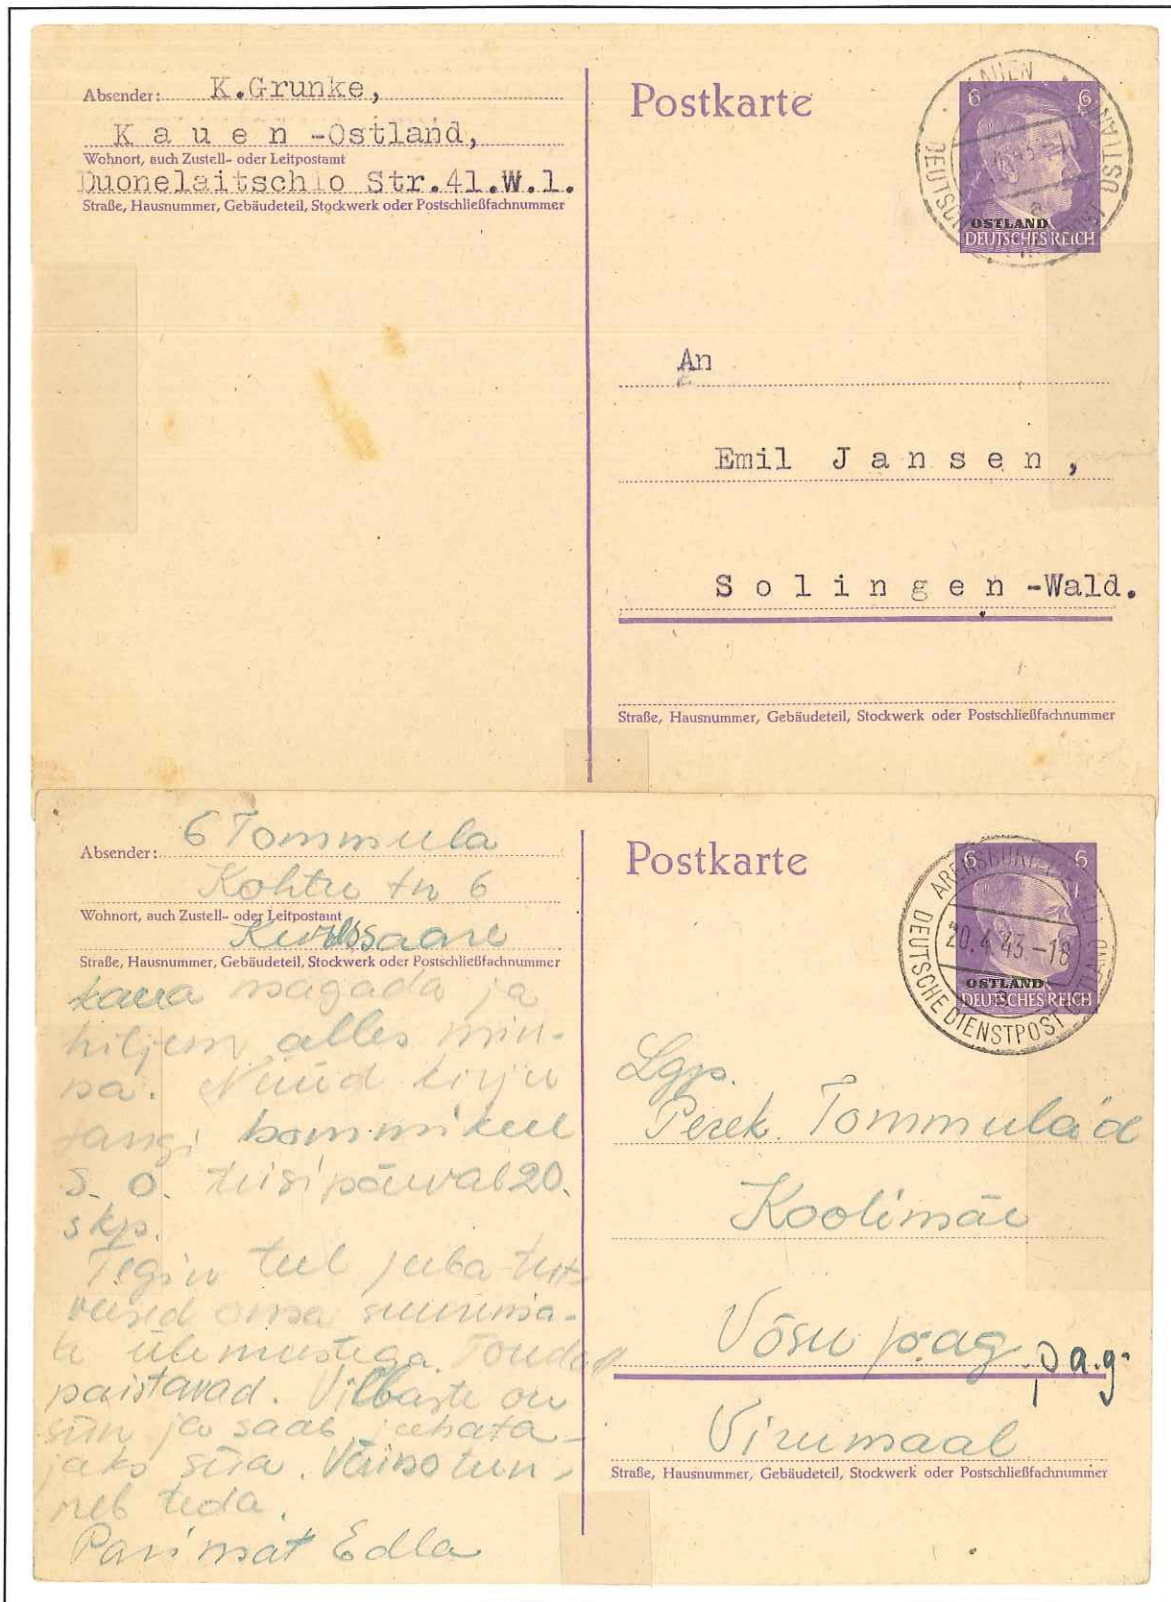 Absender: K.Grunke,
K a u e n -Ostland,
Wohnort, auch Zustell- oder Leitpostamt
Duonelaitschio Str.41.W.1.
Straße, Hausnummer, Gebäudeteil, Stockwerk oder Postschließfachnummer
Postkarte
KAUEN OSTLAND
DEUTSCHE
6 6
OSTLAND
DEUTSCHES REICH
An
Emil J a n s e n ,
S o l i n g e n -Wald.
Straße, Hausnummer, Gebäudeteil, Stockwerk oder Postschließfachnummer
Absender: Tommula
Kohtu tn 6
Wohnort, auch Zustell- oder Leitpostamt
Kuressaare
Straße, Hausnummer, Gebäudeteil, Stockwerk oder Postschließfachnummer
kaua magada ja
hiljem alles min-
na. Nüüd kirju
tangi hommikul
s. o. teisipäeval 20.
skp.
Tegin teel juba tut-
vused oma suurema-
te ülemustega. Toredad
paistavad. Vilbaste on
siin ja saab juhata-
jaks siia. Väino tun-
neb teda.
Parimat Edla
Postkarte
ARENSBURG
20.4.43.-18
a
DEUTSCHE DIENSTPOST OSTLAND
6 6
OSTLAND
DEUTSCHES REICH
Lgp.
Perek. Tommula'd
Koolimäe
Võsu p.ag. p a.g.
Virumaal
Straße, Hausnummer, Gebäudeteil, Stockwerk oder Postschließfachnummer